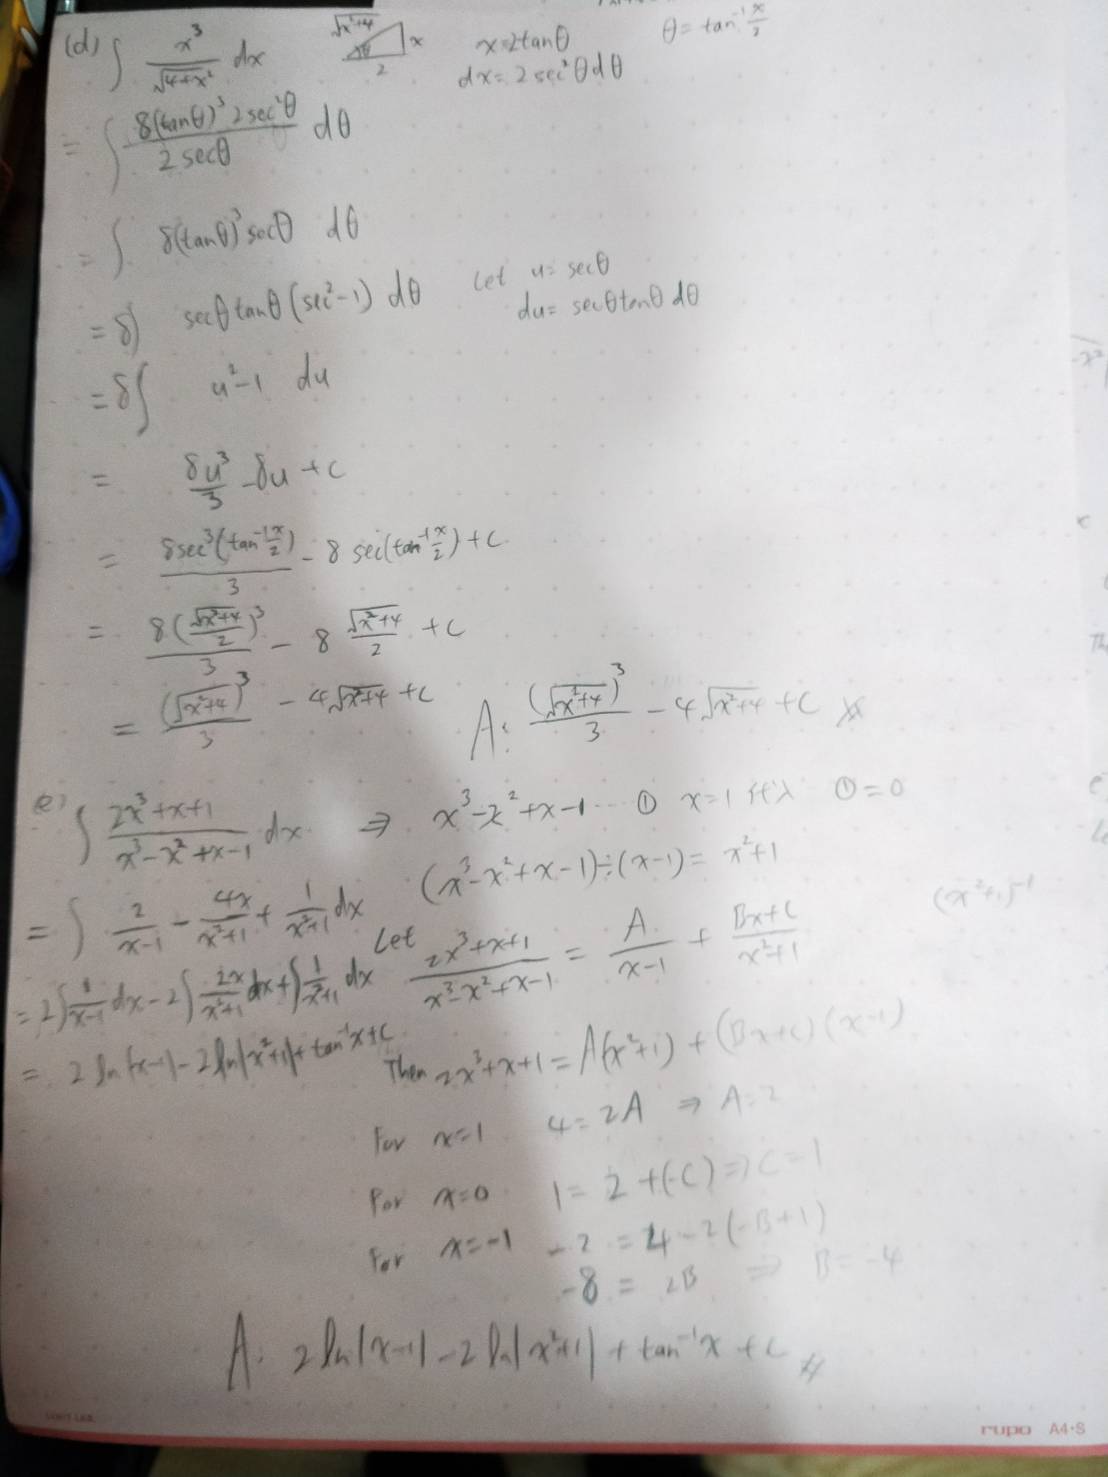 (d) ∫ x³/√(4+x²) dx √(x²+4) θ x 2 x=2tanθ θ = tan⁻¹ x/2
dx = 2 sec²θ dθ
= ∫ 8(tanθ)³ 2 sec²θ / 2 secθ dθ
= ∫ 8(tanθ)³ secθ dθ
= 8∫ secθ tanθ (sec²-1) dθ Let u = secθ
du = secθ tanθ dθ
= 8∫ u²-1 du
= 8u³/3 - 8u + C
= 8sec³(tan⁻¹ x/2)/3 - 8 sec(tan⁻¹ x/2) + C
= 8(√(x²+4)/2)³/3 - 8 √(x²+4)/2 + C
= (√(x²+4))³/3 - 4√(x²+4) + C A: (√(x²+4))³/3 - 4√(x²+4) + C
(e) ∫ (2x³+x+1)/(x³-x²+x-1) dx ⇒ x³-x²+x-1 ... ① x=1 代入 ①=0
(x³-x²+x-1)÷(x-1) = x²+1
= ∫ 2/(x-1) - 4x/(x²+1) + 1/(x²+1) dx (x²+1)⁻¹
Let (2x³+x+1)/(x³-x²+x-1) = A/(x-1) + (Bx+C)/(x²+1)
= 2∫ 1/(x-1) dx - 2∫ 2x/(x²+1) dx + ∫ 1/(x²+1) dx
= 2 ln|x-1| - 2 ln|x²+1| + tan⁻¹x + C
Then 2x³+x+1 = A(x²+1) + (Bx+C)(x-1)
For x=1 4 = 2A ⇒ A=2
For x=0 1 = 2+(-C) ⇒ C=1
For x=-1 -2 = 4-2(-B+1)
-8 = 2B ⇒ B=-4
A: 2 ln|x-1| - 2 ln|x²+1| + tan⁻¹x + C
rupo A4·S